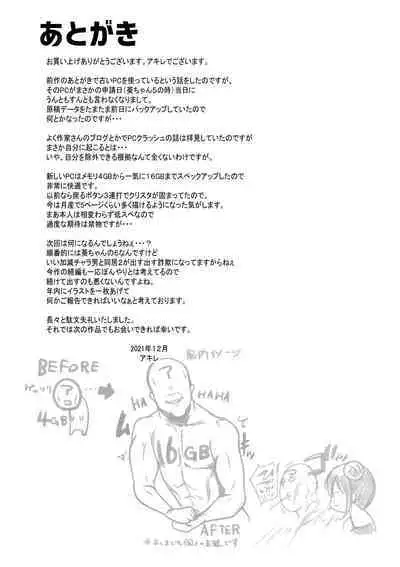 あとがき
お買い上げありがとうございます。アキレでございます。
前作のあとがきで古いPCを使っているという話をしたのですが、
そのPCがまさかの申請日(葵ちゃん5の時)当日に
うんともすんとも言わなくなりまして、
原稿データをたまたま前日にバックアップしていたので
何とかなったのですが・・・
よく作家さんのブログとかでPCクラッシュの話は拝見していたのですが
まさか自分に起こるとは・・・
いや、自分を除外できる根拠なんて全くないわけですが。
新しいPCはメモリ4GBから一気に16GBまでスペックアップしたので
非常に快適です。
以前なら戻るボタン3連打でクリスタが固まってたので、
今は月産で5ページくらい多く描けるようになった気がします。
まあ本人は相変わらず低スペなので
過度な期待は禁物ですが・・・
次回は何になるんでしょうねぇ・・・?
順番的には葵ちゃんの6なんですけど
いい加減チャラ男と同居2が出す出す詐欺になってますからねぇ
今作の続編も一応ぼんやりとは考えてるので
続けて出すのも悪くないんですよね。
年内にイラストを一枚あげて
何かご報告できればいいなぁと考えております。
長々と駄文失礼いたしました。
それでは次の作品でもお会いできれば幸いです。
2021年12月
アキレ
脳内イメージ
BEFORE
?
4GB
?
HA
HAHA
16GB
AFTER
※あくまでも個人の主観です